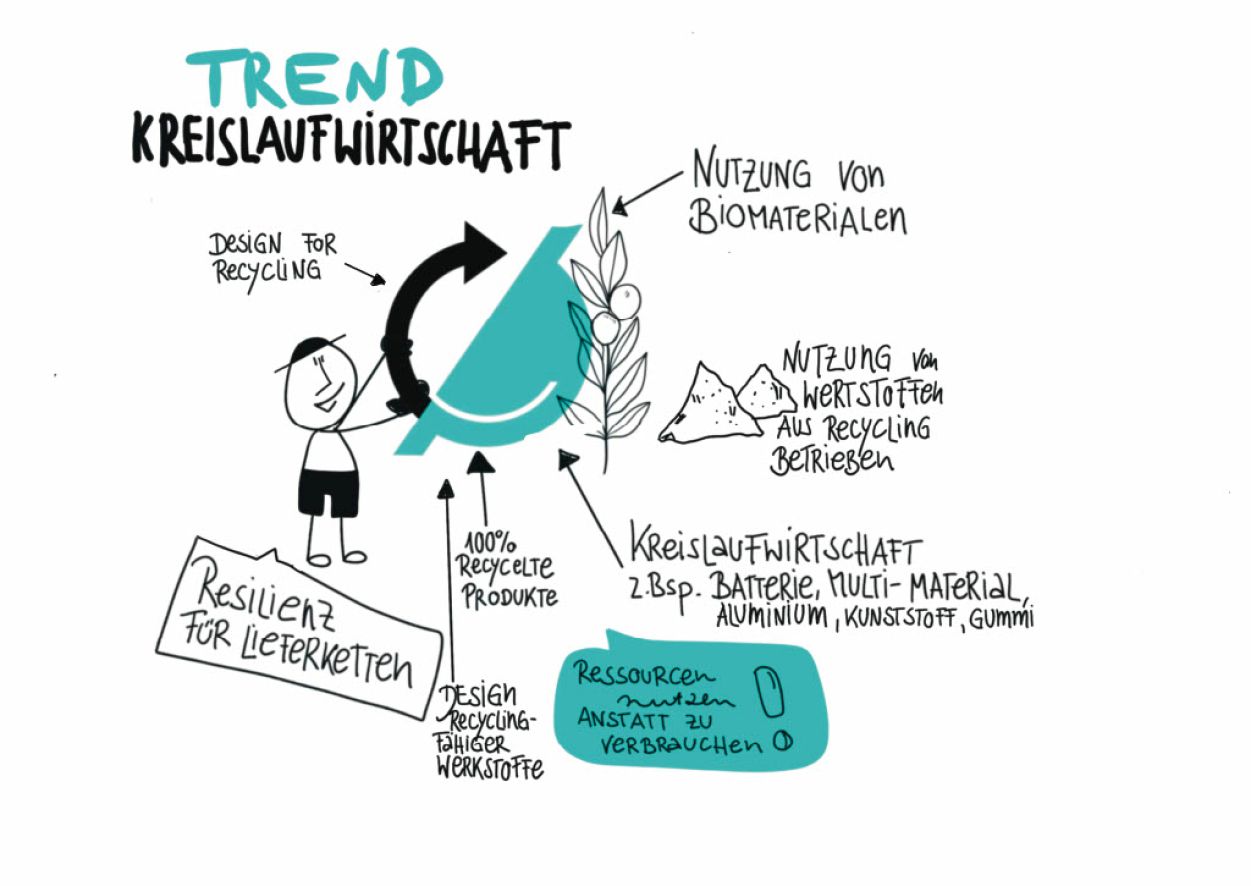 TREND
KREISLAUFWIRTSCHAFT
NUTZUNG VON
BIOMATERIALEN
DESIGN FOR
RECYCLING
NUTZUNG VON
WERTSTOFFEN
AUS RECYCLING
BETRIEBEN
KREISLAUFWIRTSCHAFT
z.Bsp. BATTERIE, MULTI-MATERIAL,
ALUMINIUM, KUNSTSTOFF, GUMMI
100%
RECYCELTE
PRODUKTE
RESILIENZ
FÜR LIEFERKETTEN
DESIGN
RECYCLING-
FÄHIGER
WERKSTOFFE
RESSOURCEN
nutzen
ANSTATT ZU
VERBRAUCHEN!